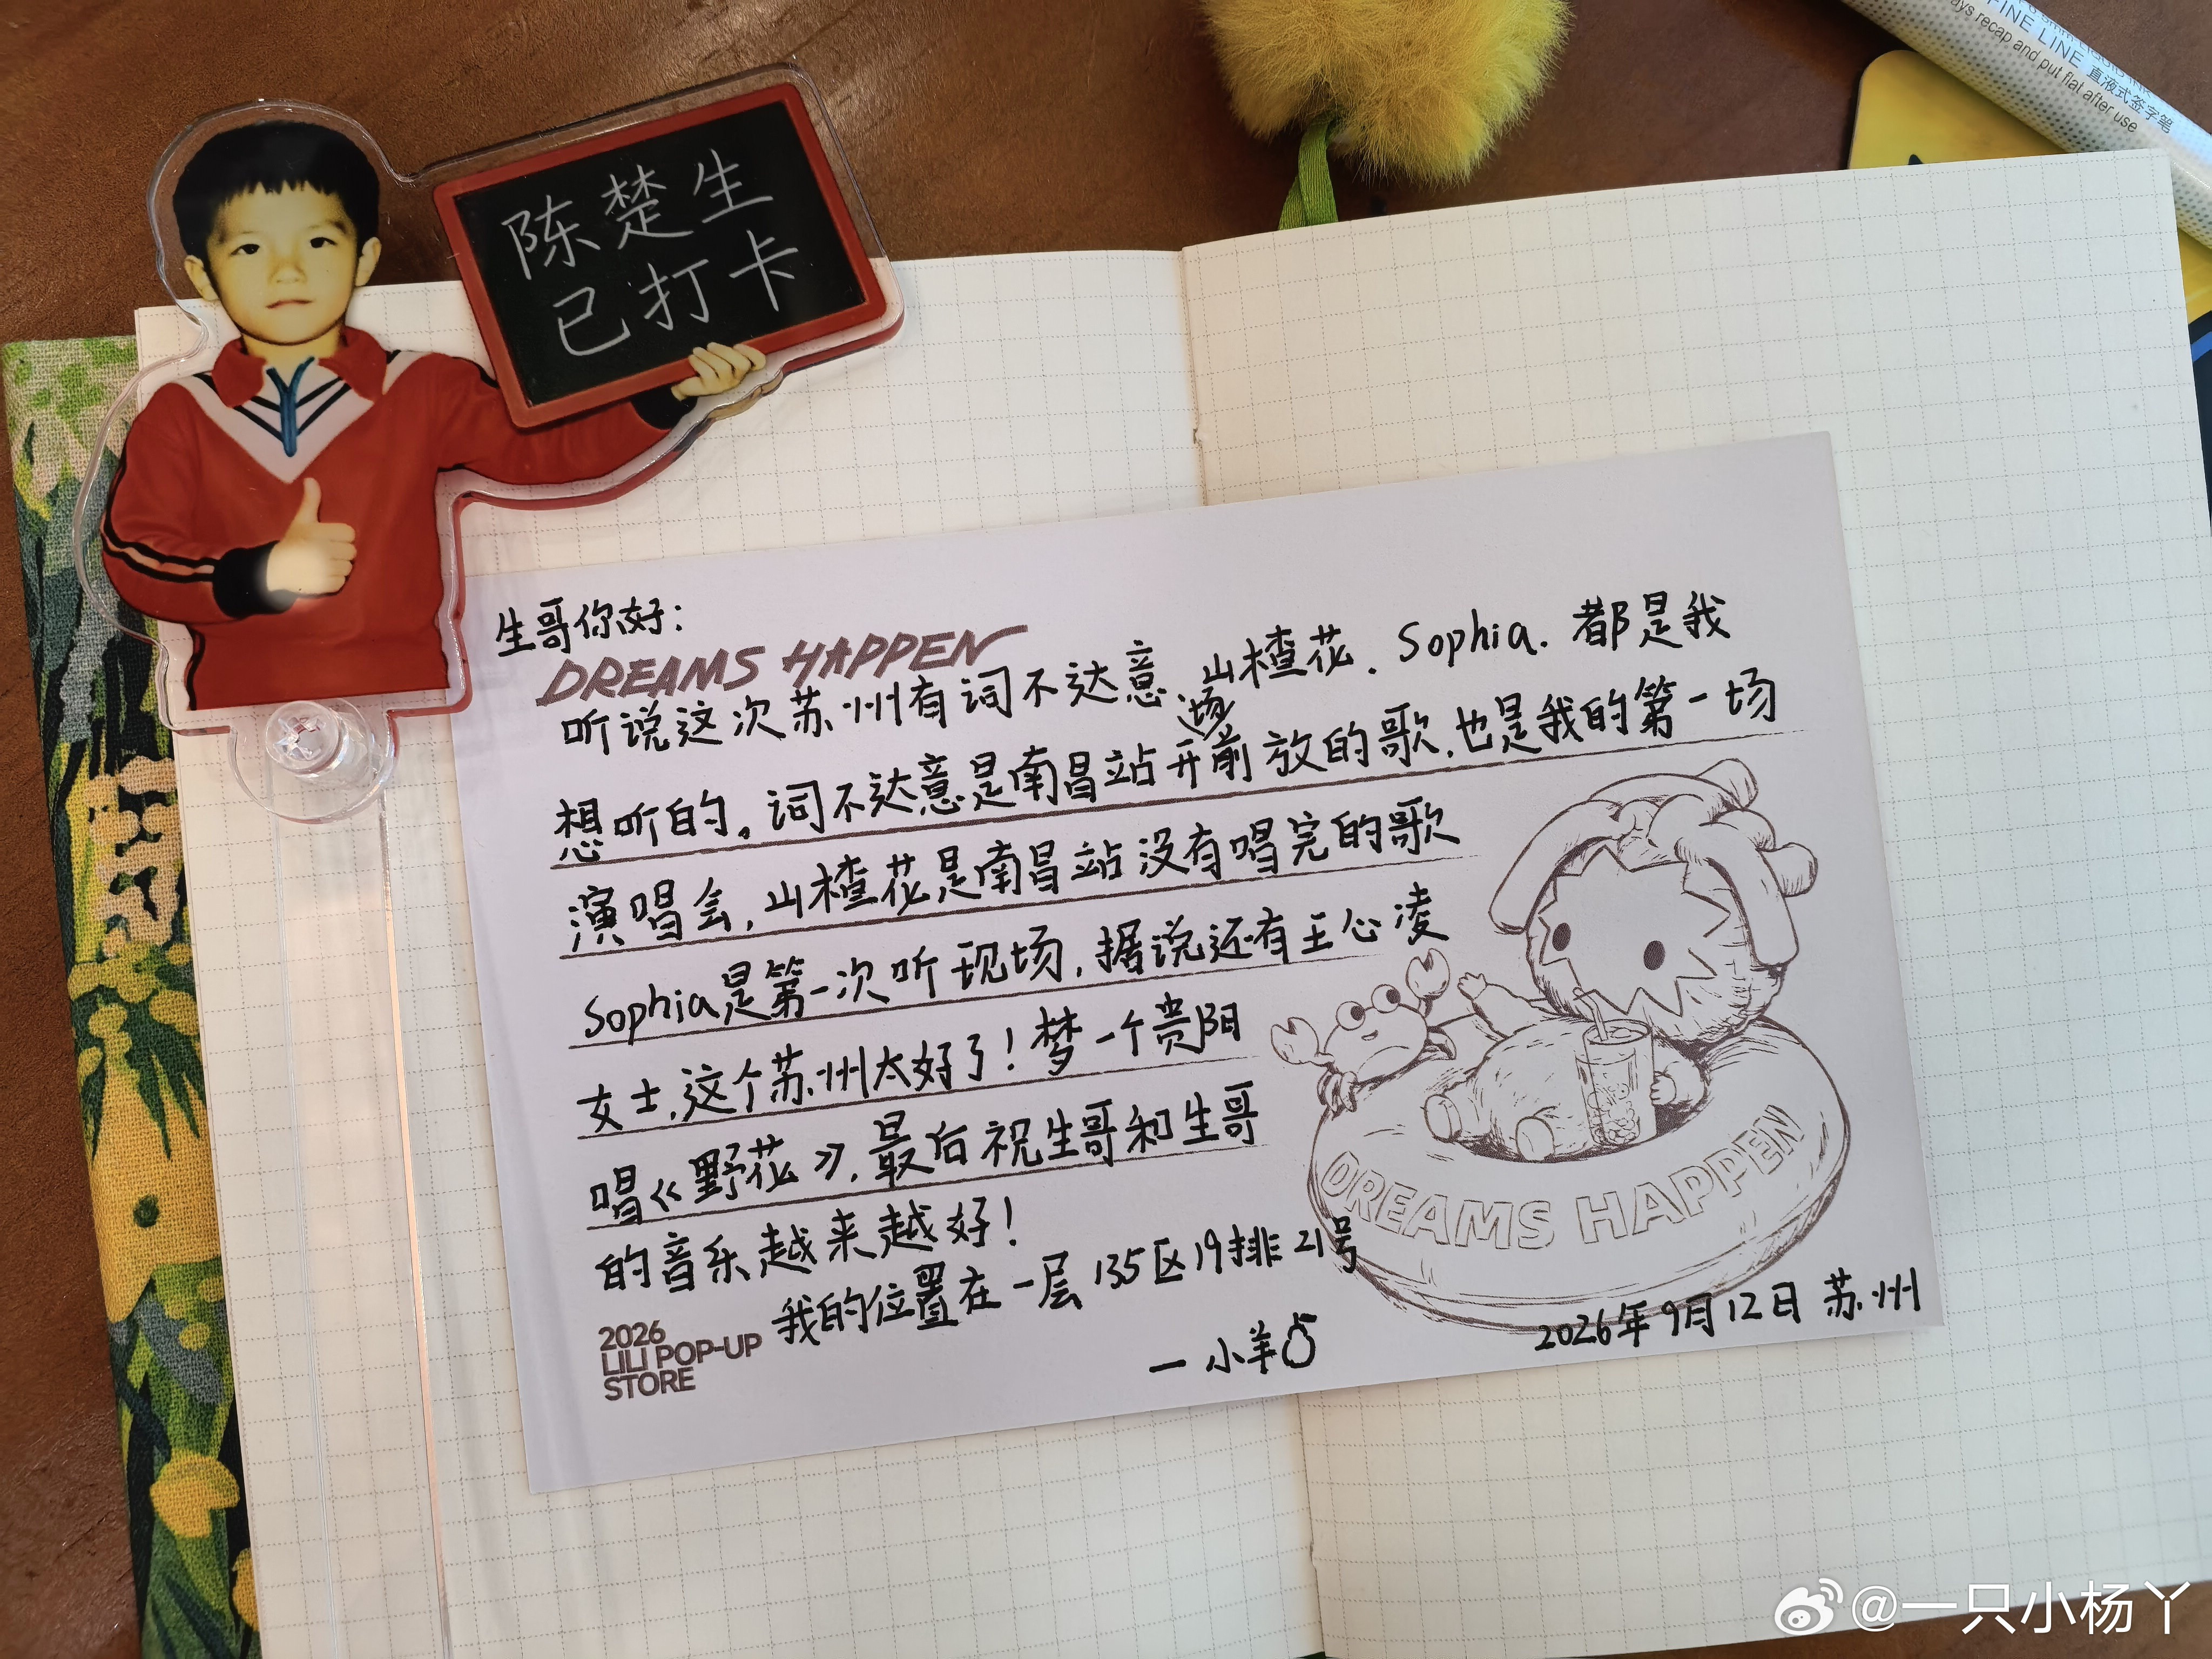 FINE LINE 直液式签字笔
ays recap and put flat after use
陈楚生
已打卡
生哥你好：
DREAMS HAPPEN
听说这次苏州有词不达意、山楂花、Sophia. 都是我
想听的。词不达意是南昌站开场前放的歌,也是我的第一场
演唱会,山楂花是南昌站没有唱完的歌
Sophia是第一次听现场,据说还有王心凌
女士,这个苏州太好了！梦一个贵阳
唱《野花》,最后祝生哥和生哥
的音乐越来越好！
我的位置在一层135区19排21号
—小羊
2026年9月12日 苏州
2026
LILI POP-UP
STORE
DREAMS HAPPEN
@一只小杨丫